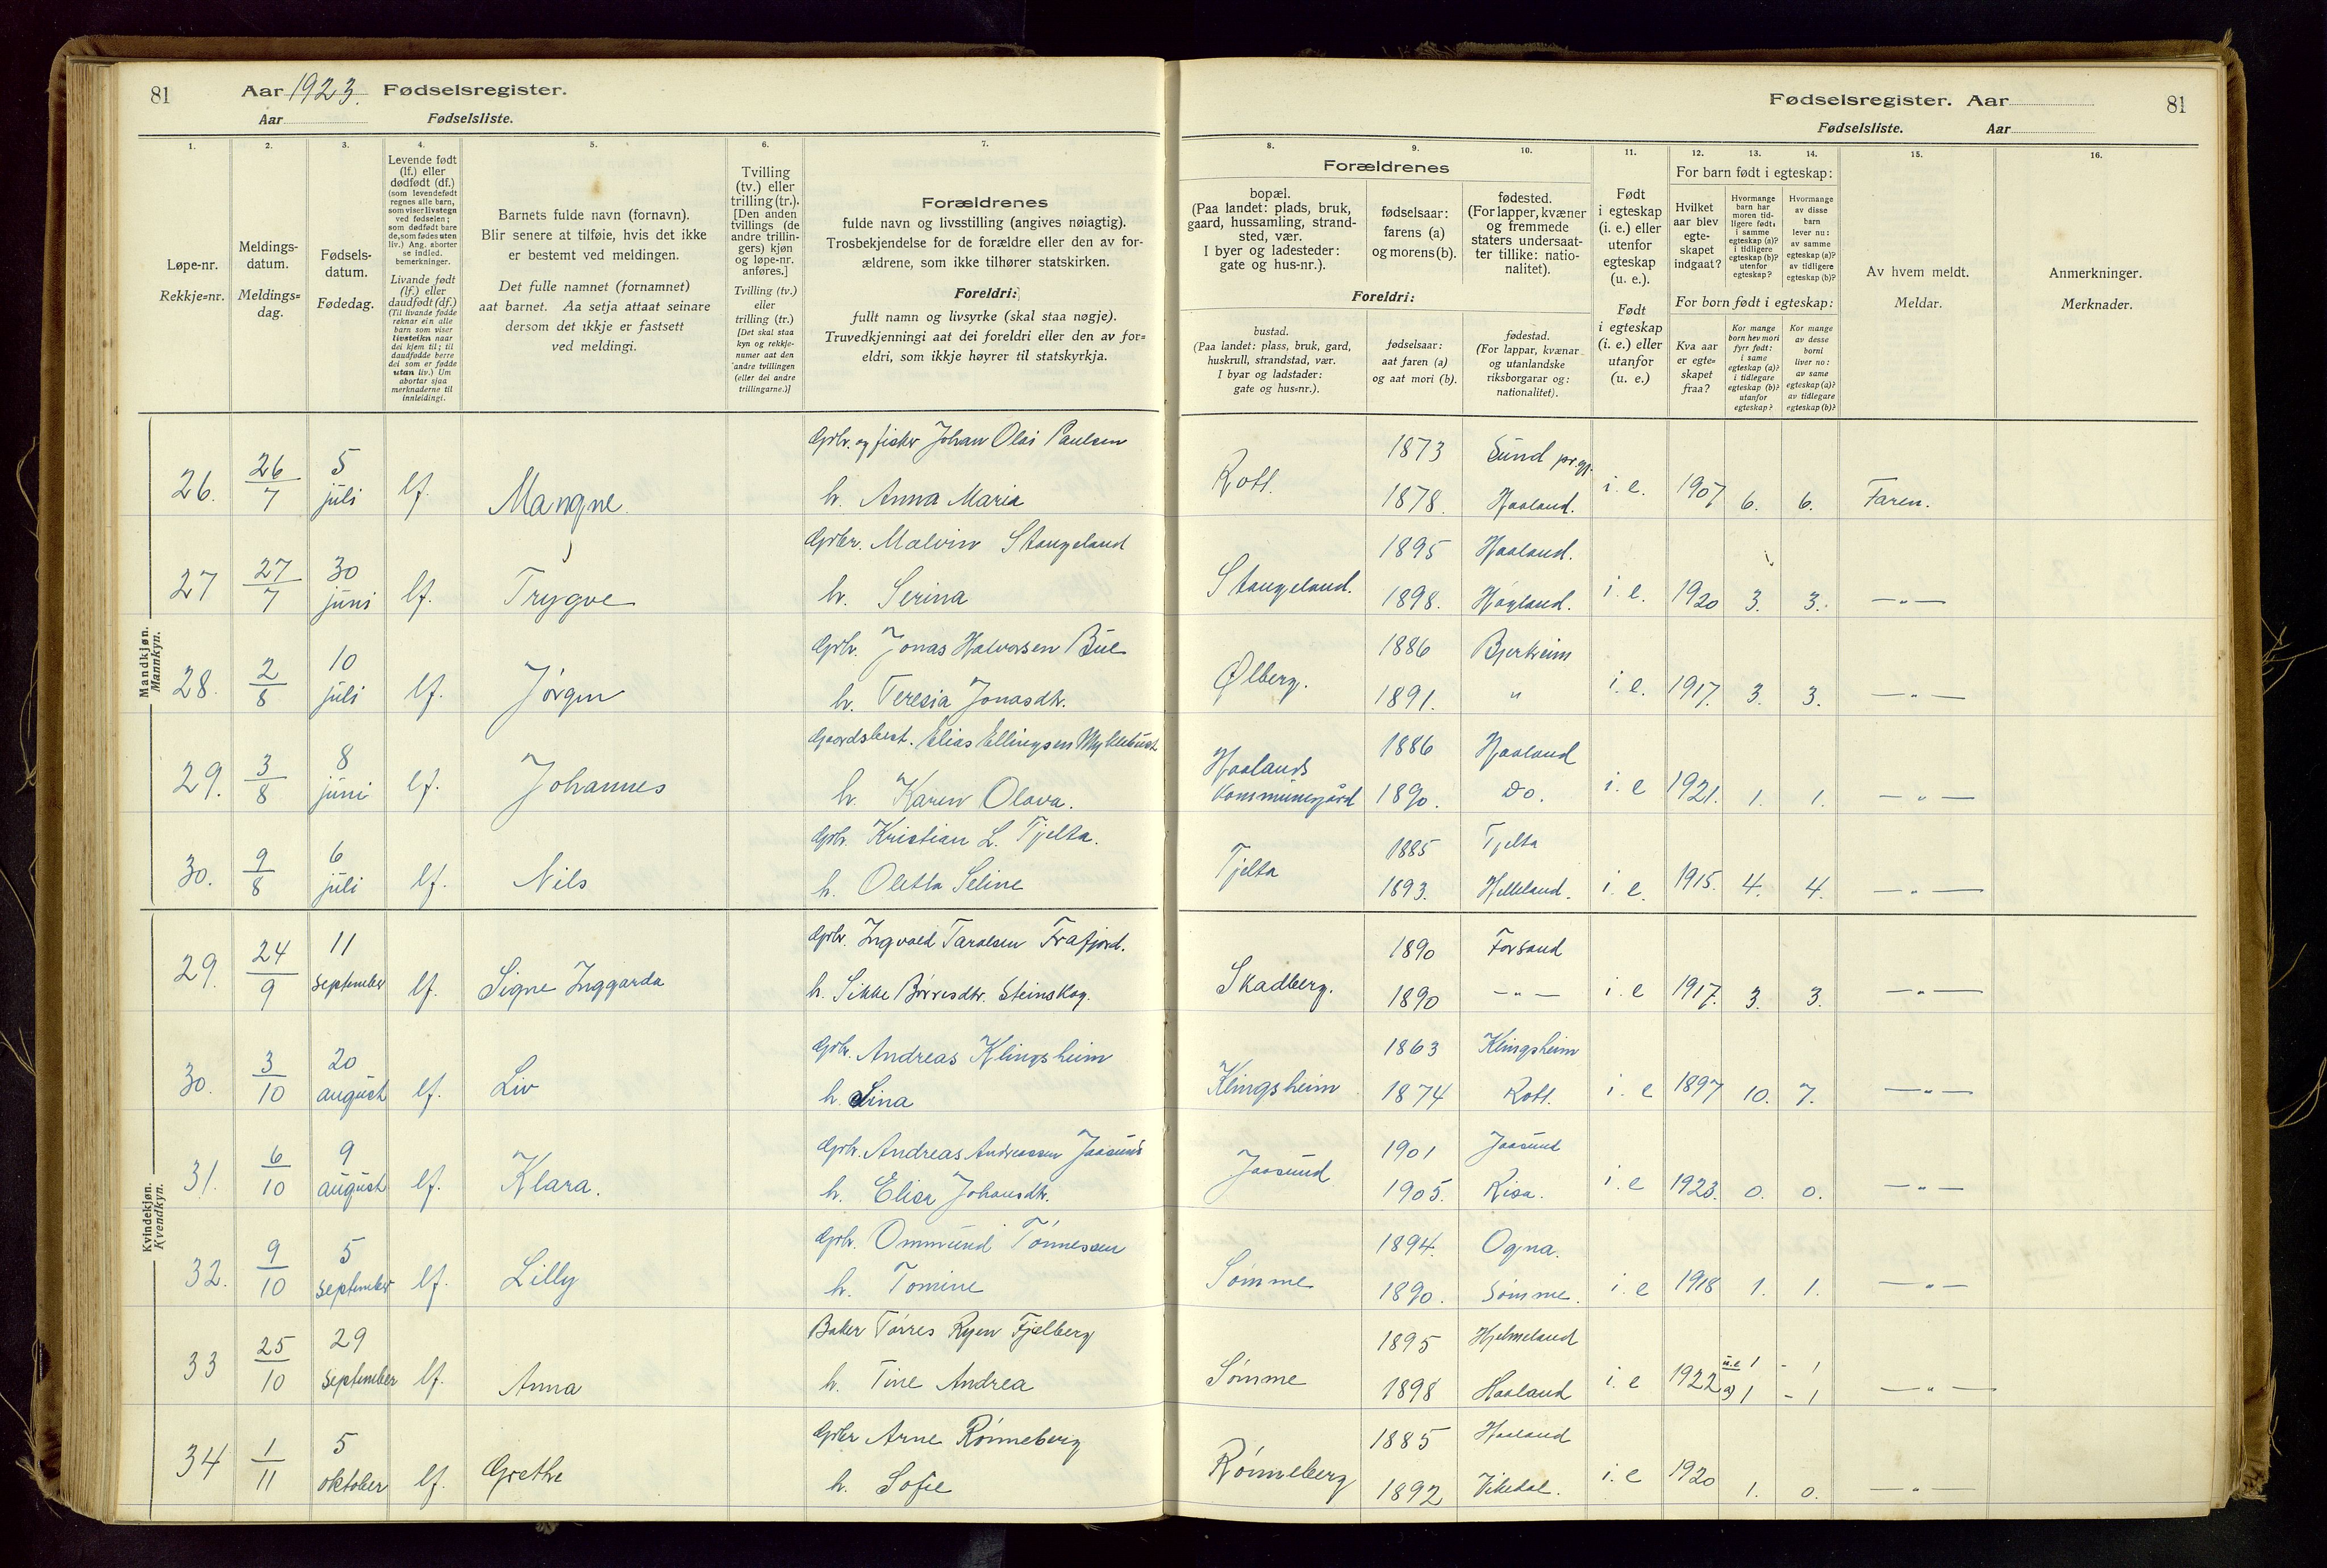 81 Aar 1923. Fødselsregister.
Aar Fødselsliste.
1. 2. 3. 4. 5. 6. 7.
Løpe-nr.
Rekkje=nr.
Meldings-
datum.
Meldings=
dag.
Fødsels-
datum.
Fødedag.
Levende født
(lf.) eller
dødfødt (df.)
(som levendefødt
regnes alle barn,
som viser livstegn
ved fødselen;
som dødfødt bare
de, som fødes uten
liv.) Ang. aborter
se indled.
bemerkninger.
Livande født
(lf.) eller
daudfødt (df.)
(Til livande fødde
reknar ein alle
barn som viser
livsteikn naar
dei kjem til; til
daudfødde berre
dei som er fødde
utan liv.) Um
abortar sjaa
merknaderne til
innleidingi.
Barnets fulde navn (fornavn).
Blir senere at tilføie, hvis det ikke
er bestemt ved meldingen.
Det fulle namnet (fornamnet)
aat barnet. Aa setja attaat seinare
dersom det ikkje er fastsett
ved meldingi.
Tvilling
(tv.) eller
trilling (tr.).
[Den anden
tvillings (de
andre trillin-
gers) kjøn
og løpe-nr.
anføres.]
Tvilling (tv.)
eller
trilling (tr.)
[Det skal staa
kyn og rekkje-
numer aat den
andre tvillingen
(eller dei andre
trillingarne.)]
Forældrenes
fulde navn og livsstilling (angives nøiagtig).
Trosbekjendelse for de forældre eller den av for-
ældrene, som ikke tilhører statskirken.
Foreldri:
fullt namn og livsyrke (skal staa nøgje).
Truvedkjenningi aat dei foreldri eller den av for=
eldri, som ikkje høyrer til statskyrkja.
Mandkjøn.
Mannkyn.
26. 26/7 5 juli lf. Magne. Grbr. og fisker Johan Olai Paulsen
h. Anna Maria
27 27/7 30 juni lf. Trygve Grbr. Malvin Stangeland
h. Serina
28. 2/8 10 juli lf. Jørgen Grbr. Jonas Halvorsen Bue
h. Teresia Jonasdtr.
29. 3/8 8 juni lf. Johannes Gaardsbest. Elias Ellingsen Myklebust
h. Karen Olava.
30. 9/8 6 juli lf. Nils Grbr. Kristian L. Tjelta.
h. Oletta Seline
Kvindekjøn.
Kvendkyn.
29. 24/9 11 september lf. Signe Inggarda Grbr. Ingvald Taralsen Frafjord.
h. Sikke Børresdtr. Steinskog.
30. 3/10 20 august lf. Liv Grbr. Andreas Klingsheim
h. Lina
31. 6/10 9 august lf. Klara. Grbr. Andreas Andreassen Jaasund
h. Elisa Johansdtr.
32. 9/10 5 september lf. Lilly Grbr. Ommund Tønnessen
h. Tomine
33 25/10 29 september lf. Anna Baker Tørres Ryen Fjelberg
h. Tine Andrea
34 1/11 5 oktober lf. Grethe Grbr Arne Rønneberg
h. Sofie
Fødselsregister. Aar 81
Fødselsliste. Aar
8. 9. 10. 11. 12. 13. 14. 15. 16.
Forældrenes
bopæl.
(Paa landet: plads, bruk,
gaard, hussamling, strand-
sted, vær.
I byer og ladesteder:
gate og hus-nr.).
fødselsaar:
farens (a)
og morens (b).
fødested.
(For lapper, kvæner
og fremmede
staters undersaat-
ter tillike: natio-
nalitet).
Foreldri:
bustad.
(Paa landet: plass, bruk, gard,
huskrull, strandstad, vær.
I byar og ladstader:
gate og hus=nr.).
fødselsaar:
aat faren (a)
og aat mori (b).
fødestad.
(For lappar, kvænar
og utanlandske
riksborgarar og:
nationalitet).
Født
i egteskap
(i. e.) eller
utenfor
egteskap
(u. e.).
Født
i egteskap
(i. e.) eller
utanfor
(u. e.)
For barn født i egteskap:
Hvilket
aar blev
egte-
skapet
indgaat?
Hvormange
barn har
moren tid-
ligere født:
i samme
egteskap (a)?
i tidligere
egteskap (b)?
utenfor
egteskap?
Hvormange
av disse
barn
lever nu:
av samme
egteskap (a)?
av tidligere
egteskap (b)?
For born født i egteskap:
Kva aar
er egte=
skapet
fraa?
Kor mange
born hev mori
fyrr født:
i same
egteskap (a)?
i tidlegare
egteskap (b)?
utanfor
egteskap?
Kor mange
av desse
borni
liver no:
av same
egteskap (a)?
av tidlegare
egteskap (b)?
Av hvem meldt.
Meldar.
Anmerkninger.
Merknader.
Rott. 1873 Sund pr.gj.
1878. Haaland. i. e. 1907 6. 6. Faren.
Stangeland. 1895 Haaland.
1898. Høyland. i. e. 1920 3. 3. — " —
Ølberg. 1886 Bjerkreim
1891. " i. e. 1917. 3. 3. — " —
Haalands kommunegård 1886 Haaland
1890. Do. i. e 1921. 1. 1. — " —
Tjelta 1885 Tjelta
1893. Helleland. i. e. 1915. 4. 4. — " —
Skadberg. 1890 Forsand
1890 — " — i. e 1917. 3. 3. — " —
Klingsheim 1863 Klingsheim
1874 Rott. i. e 1897 10. 7. — " —
Jaasund 1901 Jaasund
1905. Risa. i. e 1923. 0. 0. — " —
Sømme 1894. Ogna.
1890. Sømme. i. e 1918 1. 1. — " —
Sømme 1895 Hjelmeland u.e 1 - 1
1898 Haaland i. e 1922 a) 1 - 1 — " —
Rønneberg 1885 Haaland
1892 Vikedal. i. e 1920 1. 0. — " —